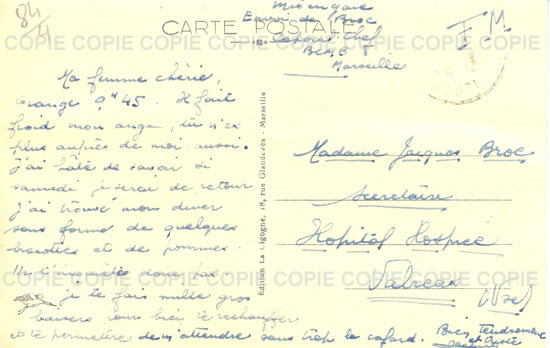 84/4
CARTE POSTALE
Mis en gare
Envoi de J. Broc
Caporal Chef
Marseille
F. M.
Ma femme chérie,
Orange 9h45. Il fait
froid mon ange, tu n'es
plus auprès de moi aussi.
J'ai hâte de savoir si
samedi je serai de retour
J'ai trouvé mon diner
sous forme de quelques
biscottes et de pommes.
Ne t'inquiètes donc pas.
je te fais mille gros
baisers pour bien te réchauffer
et te permettre de m'attendre sans trop le cafard. Bien tendrement
Edition La Cigogne, 18, rue Glandevès - Marseille
Madame Jacques Broc
Secrétaire
Hopital Hospice
Valréas (Vse)
COPIE COPIE COPIE COPIE COPIE COPIE COPIE